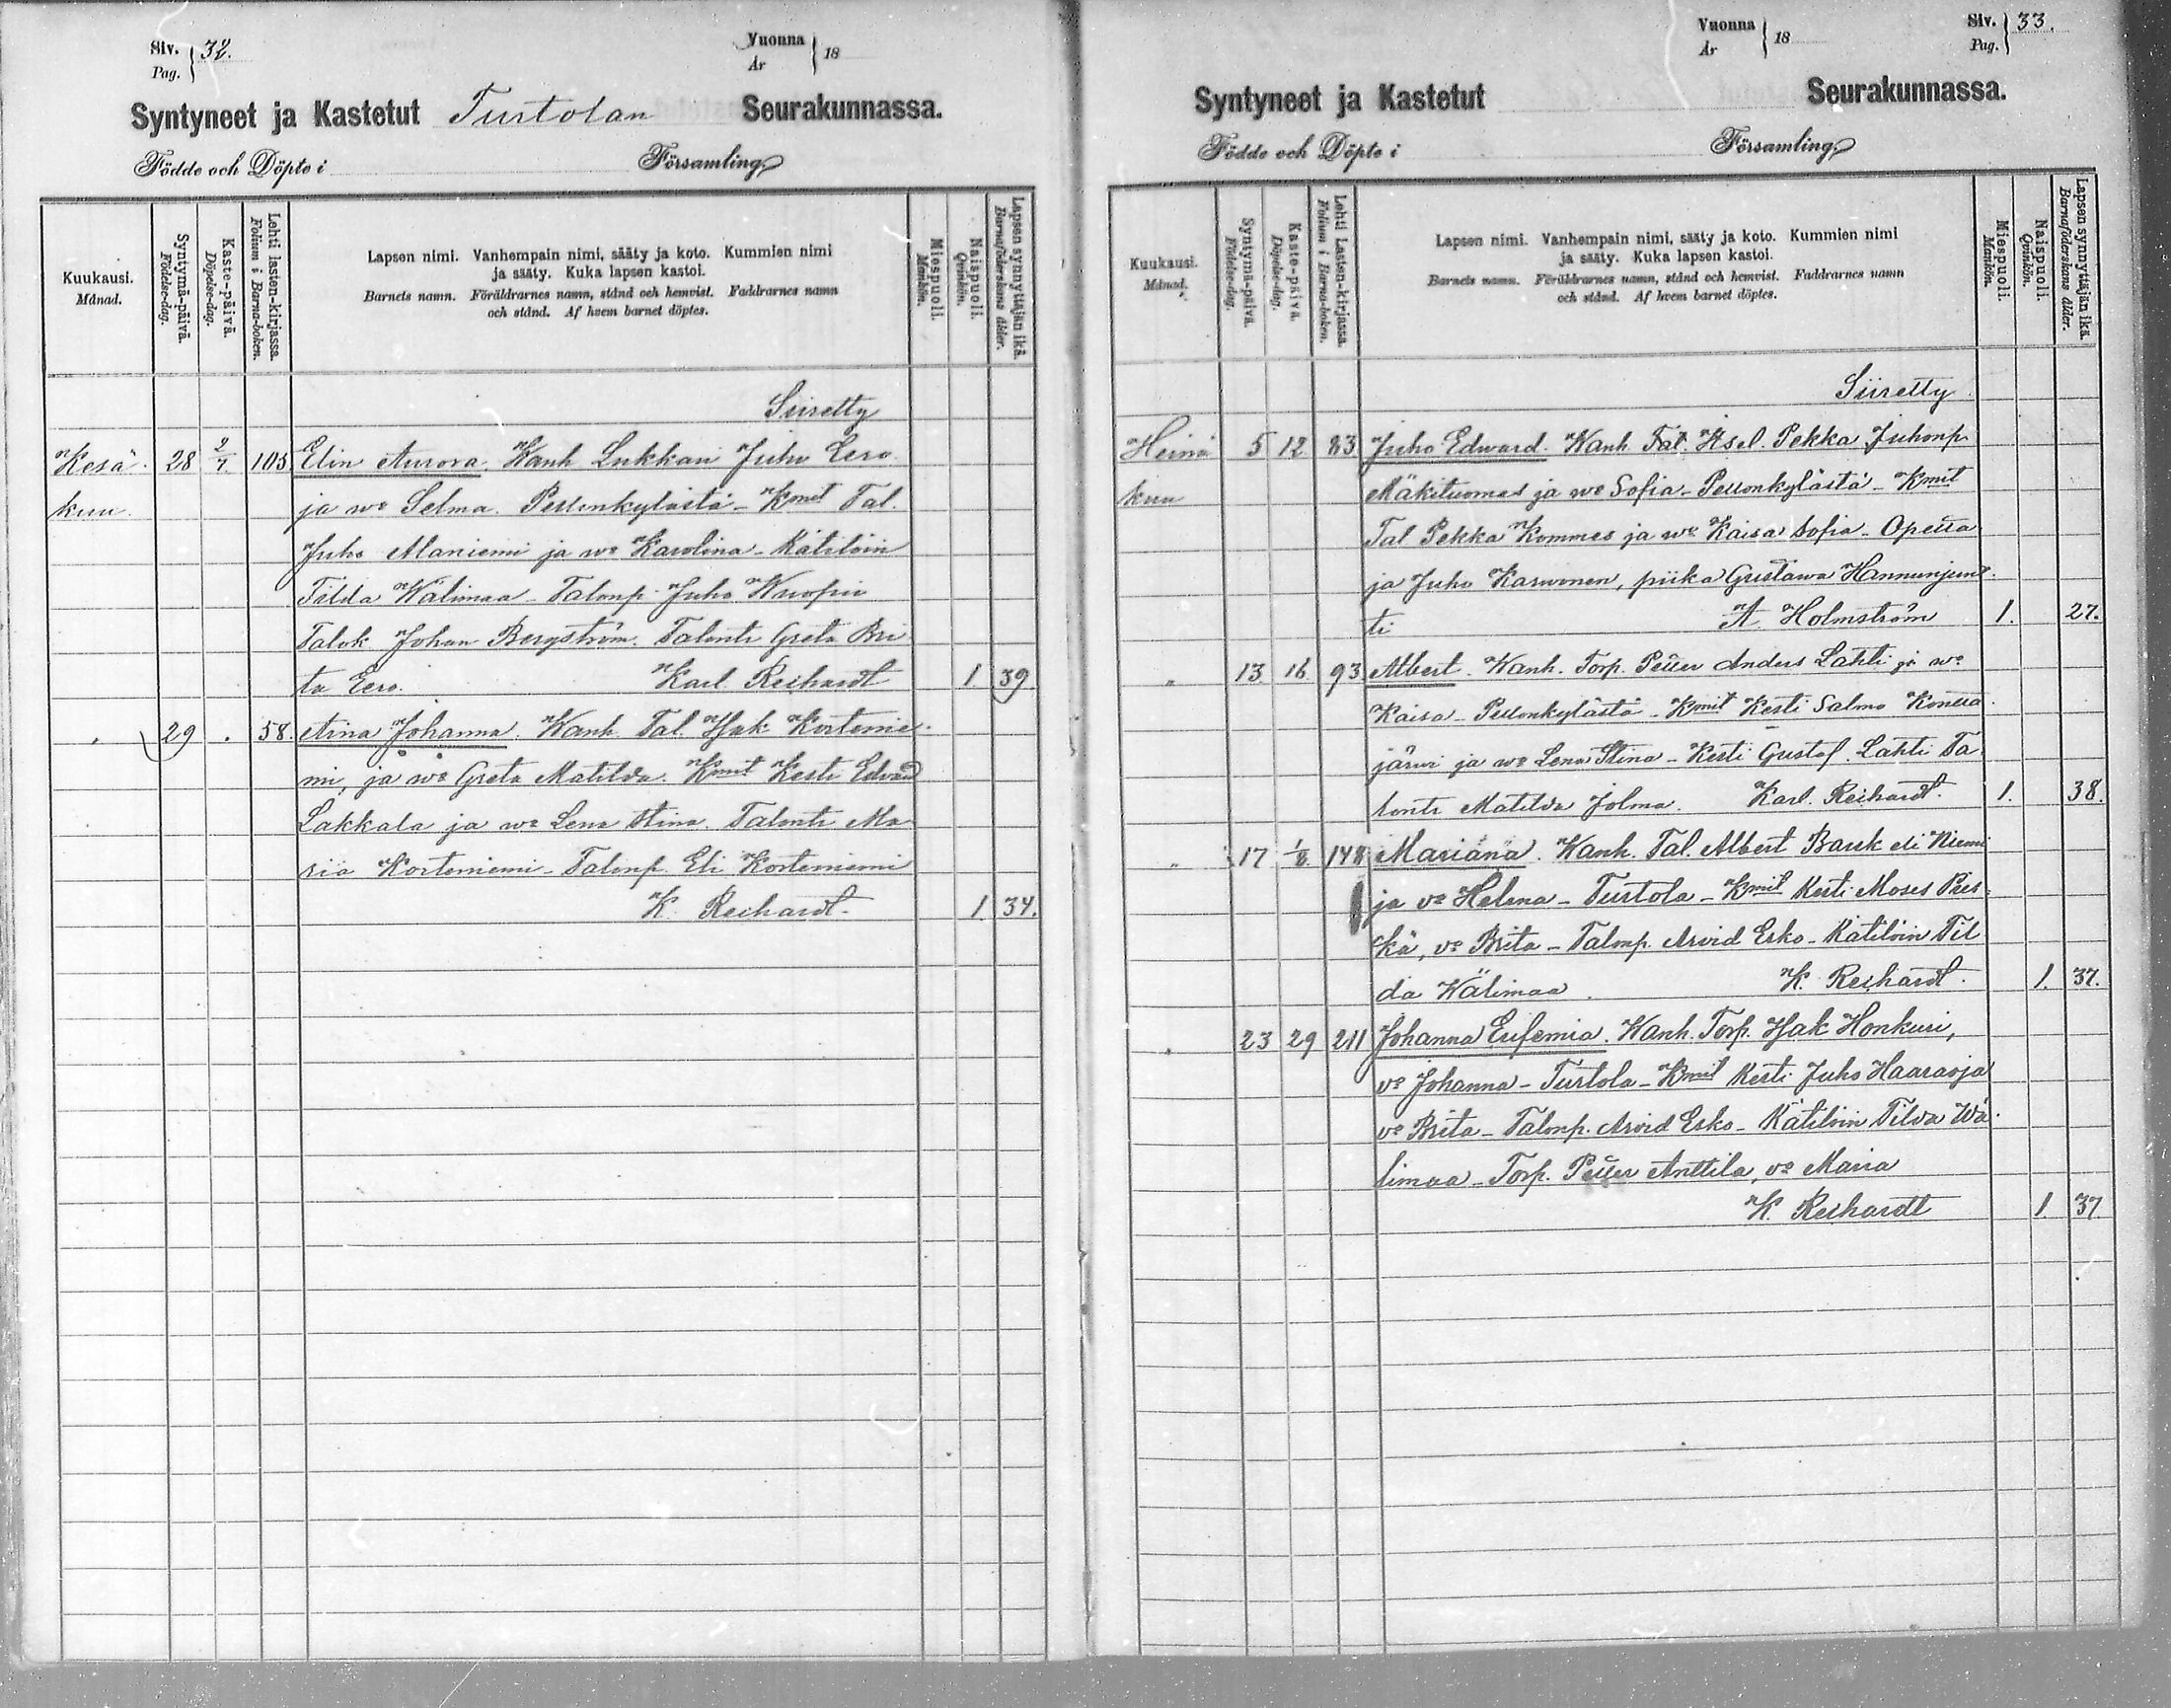 Siv. 32.
Pag.
Vuonna
År 18
Syntyneet ja Kastetut Turtolan Seurakunnassa.
Födde och Döpte i Församling
Kuukausi.
Månad.
Syntymä-päivä.
Födelse-dag.
Kaste-päivä.
Döpelse-dag.
Lehti lasten-kirjassa.
Folium i Barna-boken.
Lapsen nimi. Vanhempain nimi, sääty ja koto. Kummien nimi
ja sääty. Kuka lapsen kastoi.
Barnets namn. Föräldrarnes namn, stånd och hemvist. Faddrarnes namn
och stånd. Af hvem barnet döptes.
Miespuoli.
Mankön.
Naispuoli.
Qvinkön.
Lapsen synnyttäjän ikä.
Barnaföderskans ålder.
Siiretty
Kesä 28 2/7 105 Elin Aurora Wanh Lukkari Juho Eero
kuu. ja wo Selma. Pellonkylästä - Kmit Tal.
Juho Maniemi ja wo Karolina - Kätilöin
Tilda Wälimaa - Talonp. Juho Kuopus
Talok Johan Bergström. Talontr Greta Bri
ta Eero. Karl Reihardt 1 39
29 58. Aina Johanna. Wanh. Tal. Isak Kortenie
mi, ja wo Greta Matilda. Kmit Kesti Edvard
Lakkala ja wo Lena Stina. Talontr Ma
ria Korteniemi - Talonp. Eli Korteniemi
K. Reihardt - 1. 34.
Vuonna
År 18
Siv. 33.
Pag.
Syntyneet ja Kastetut Seurakunnassa.
Födde och Döpte i Församling
Kuukausi.
Månad.
Syntymä-päivä.
Födelse-dag.
Kaste-päivä.
Döpelse-dag.
Lehti lasten-kirjassa.
Folium i Barna-boken.
Lapsen nimi. Vanhempain nimi, sääty ja koto. Kummien nimi
ja sääty. Kuka lapsen kastoi.
Barnets namn. Föräldrarnes namn, stånd och hemvist. Faddrarnes namn
och stånd. Af hvem barnet döptes.
Miespuoli.
Mankön.
Naispuoli.
Qvinkön.
Lapsen synnyttäjän ikä.
Barnaföderskans ålder.
Siiretty
Heinä 5 12 83 Juho Edward. Wanh. Tal. Pekka Juhonp.
kuu Mäkituomas ja wo Sofia - Pellonkylästä - Kmit
Tal Pekka Kommes ja wo Kaisa Sofia - Opetta
ja Juho Karvonen, piika Gustawa Hannunjunt
ti A. Holmström 1. 27.
" 13. 16 93 Albert. Wanh. Torp. Petter Anders Lahti ja wo
Kaisa - Pellonkylästä - Kmit Kesti Salmo
järwi ja wo Lena Stina - Kesti Gustaf. Lahti Ta
lontr Matilda Jolma. Karl. Reihardt. 1. 38.
" 17 1/8 148 Mariana. Wanh. Tal. Albert Barck eli Niemi
ja vo Helena - Turtola - Kmit Kesti Moses Pies
kä, vo Brita - Talonp. Arvid Esko - Kätilöin Til
da Wälimaa. K. Reihardt. 1. 37.
" 23 29 211 Johanna Eufemia. Wanh. Torp. Isak Honkuri,
vo Johanna - Turtola - Kmit Kesti Juho Haaraoja
vo Brita - Talonp. Arvid Esko - Kätilöin Tilda Wä
limaa - Torp. Petter Anttila, vo Maria
K. Reihardt 1. 37